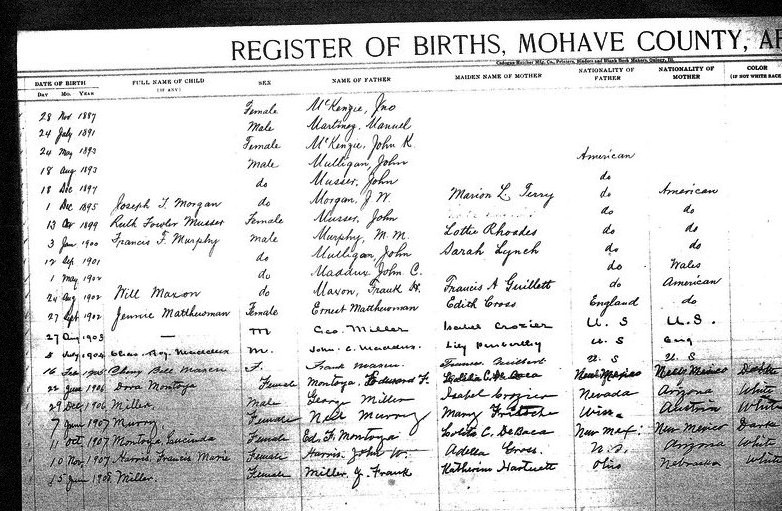 REGISTER OF BIRTHS, MOHAVE COUNTY, AR
Codogan-Hatcher Mfg. Co., Printers, Binders and Blank Book Makers, Quincy, Ill.
DATE OF BIRTH FULL NAME OF CHILD SEX NAME OF FATHER MAIDEN NAME OF MOTHER NATIONALITY OF FATHER NATIONALITY OF MOTHER COLOR
DAY MO. YEAR (IF ANY) (IF NOT WHITE RACE
28 Nov 1887 Female McKenzie, Jno
24 July 1891 Male Martinez, Manuel
24 May 1893 Female McKenzie, John K.
18 Aug 1893 Male Mulligan, John American
18 Dec 1894 do Musser, John do
1 Dec 1895 Joseph T. Morgan do Morgan, J. W. Marion L. Terry do American
13 1899 Ruth Fowler Musser Female Musser, John do do
3 Jan 1900 Francis F. Murphy Male Murphy, M. M. Lottie Rhoades do do
12 Sep 1901 do Mulligan, John Sarah Lynch do do
1 May 1902 do Maddux John C. do Wales
24 Aug 1902 Will Maxon do Maxon, Frank H. Francis A do American
27 Sept 1902 Jennie Matthewman Female Ernest Matthewman Edith Cross England do
27 Aug 1903 — M Geo. Miller Isabel Crozier U. S U. S.
5 July 1904 Chas. Roy Maddux M. John C. Maddux Lily U. S Eng
16 Feb 1905 Bell Maxon F. Frank Maxon Frances U. S U. S
22 June 1906 Dora Montoya Female Montoya, Edward F. C. De Baca New Mexico New Mexico Dark
29 Dec 1906 Miller, Male George Miller Isabel Crozier Nevada Arizona White
7 June 1907 Murray, Female Neil Murray Mary Wis. Austria White
11 Oct 1907 Montoya, Lucinda Female Ed. F. Montoya C. DeBaca New Mex. New Mexico Dark
10 Nov 1907 Harris, Francis Marie Female Harris, John W. Adella Gross. U.S. Arizona White
15 Jan 1908 Miller. Female Miller, J. Frank Katherine Hartnett Ohio Nebraska White